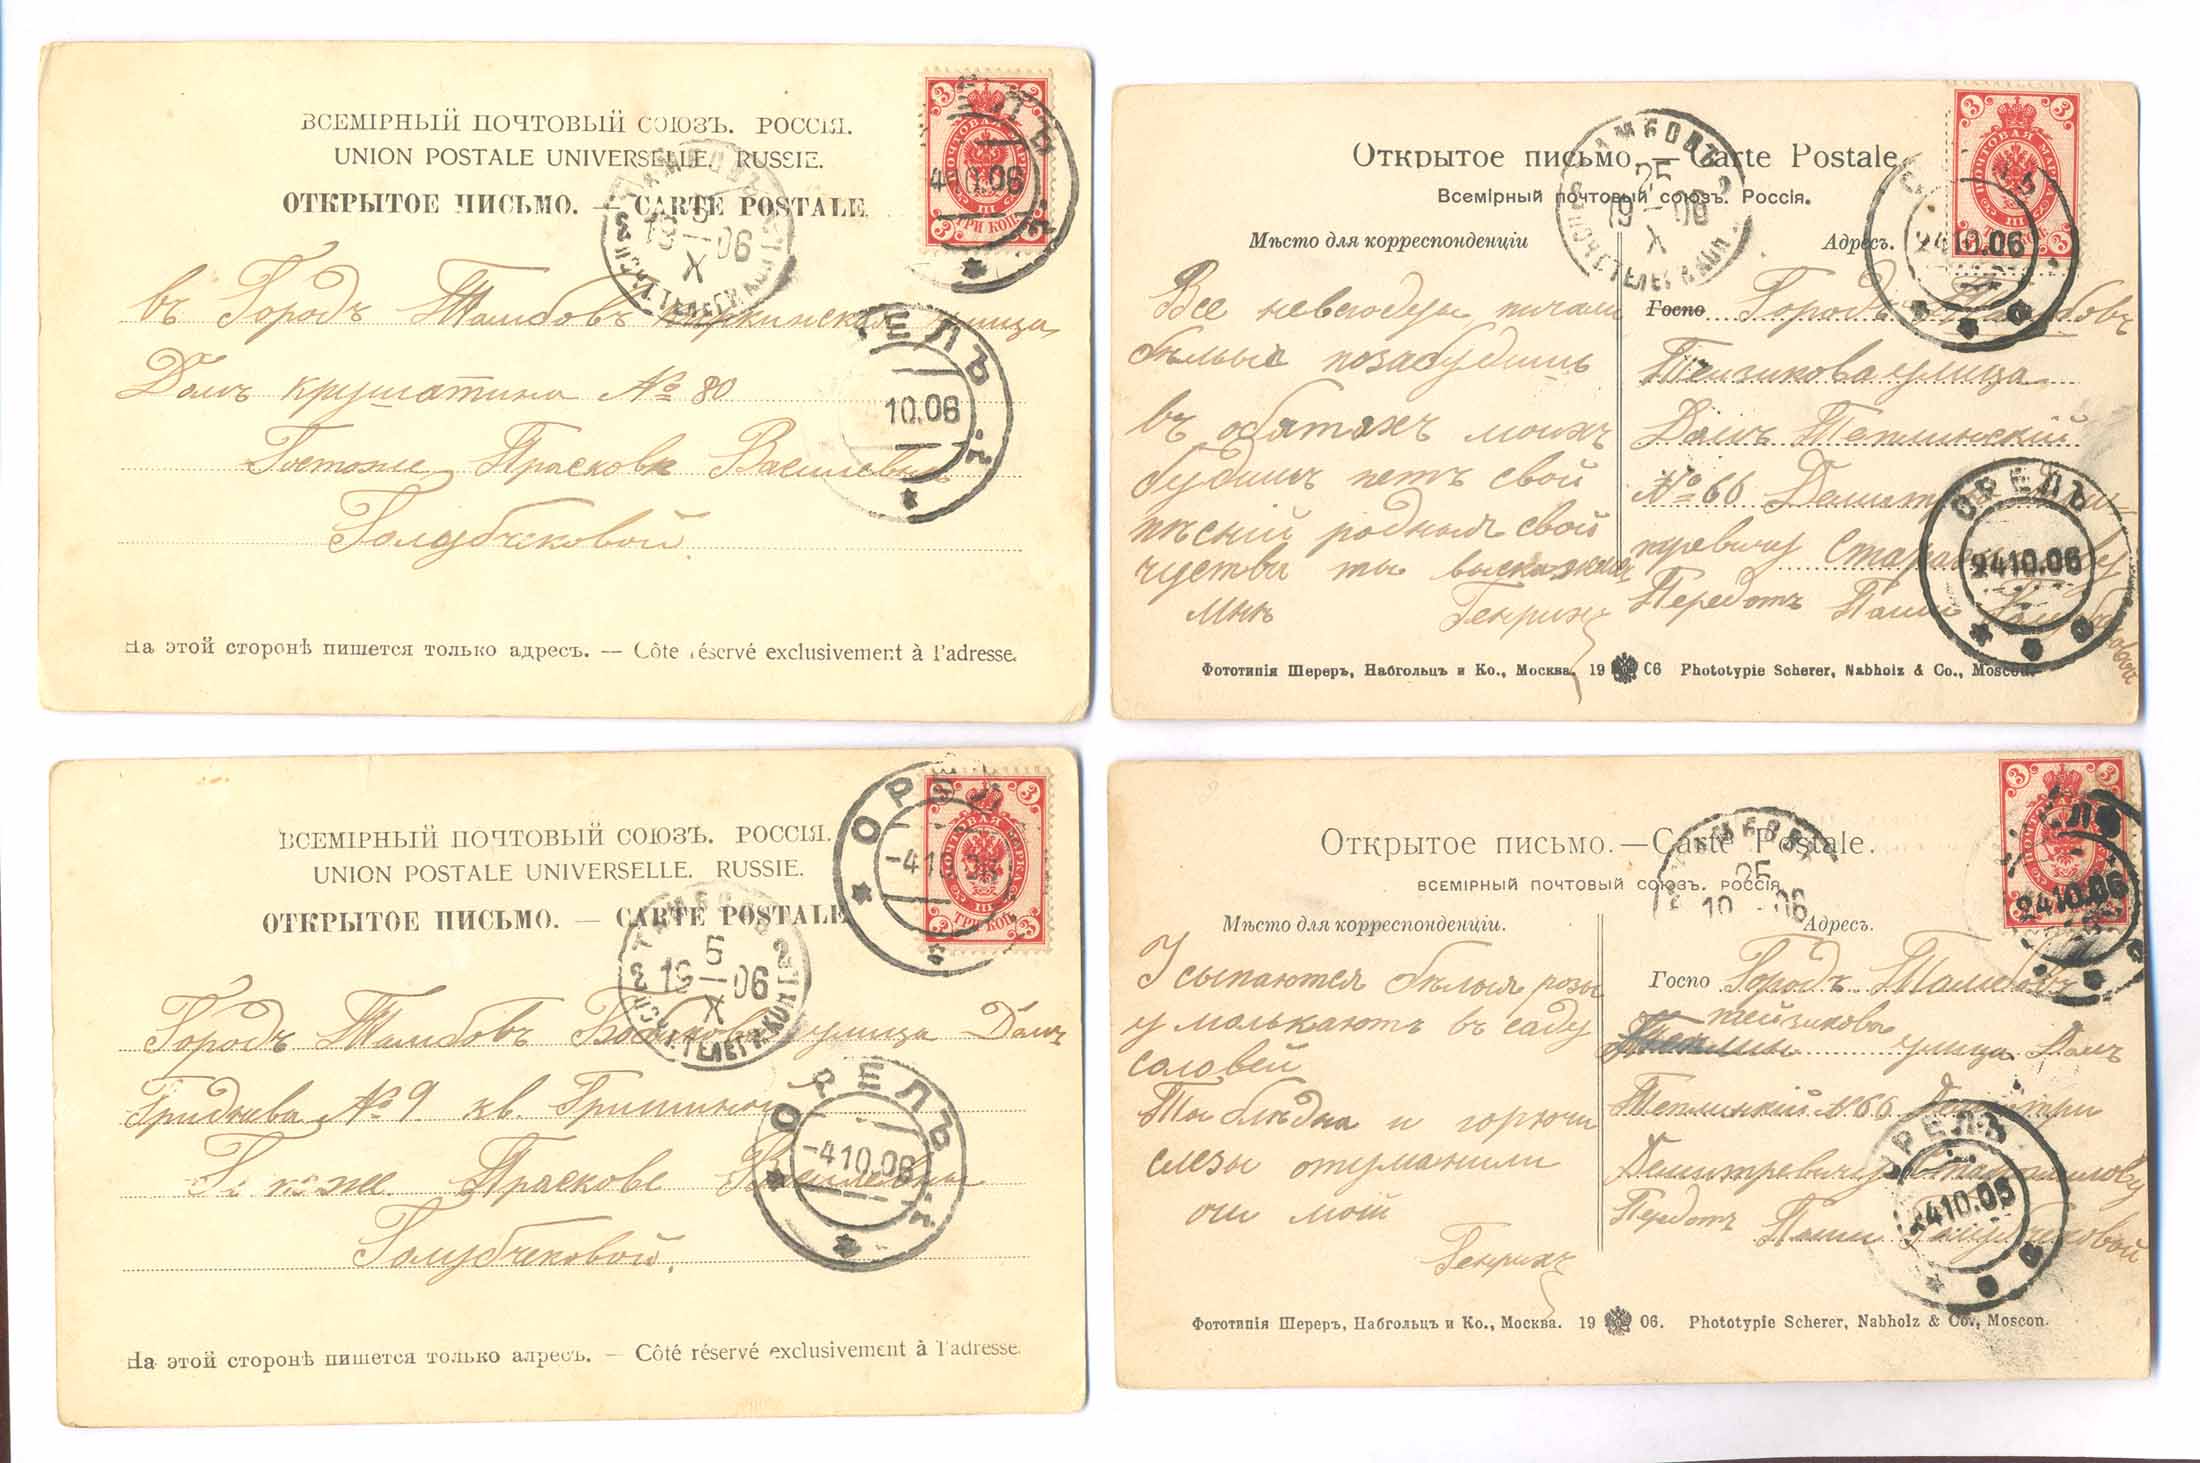 ВСЕМІРНЫЙ ПОЧТОВЫЙ СОЮЗЪ. РОССІЯ.
UNION POSTALE UNIVERSELLE. RUSSIE.
ОТКРЫТОЕ ПИСЬМО. — CARTE POSTALE.
3 3
ПОЧТОВАЯ МАРКА
ТРИ КОП.
ТАМБОВЪ
19 — 06
X
10.06
въ Городъ Тамбовъ улица
Домъ № 80
ОРЕЛЪ
10.06
Госпоже Прасковѣ Василевнѣ
Голубчковой.
На этой сторонѣ пишется только адресъ. — Côte réservé exclusivement à l'adresse.
Открытое письмо. — Carte Postale.
Всемірный почтовый союзъ. Россія.
Мѣсто для корреспонденціи
Адресъ.
ТАМБОВЪ
25
19 — 06
X
2410.06
Все невсгоды пичали
былыя позабудишь
въ обятяхъ моихъ
будишь петь свой
пѣсній родныя свой
чуства ты выскажишь
мнѣ Генрихъ
Госпо Городъ Тамбовъ
улица
Домъ Теплинский
№ 66
Передать Паши
ОРЕЛЪ
2410.06
Фототипія Шереръ, Набгольцъ и Ко., Москва. 19 06 Phototypie Scherer, Nabholz & Co., Moscou.
ВСЕМІРНЫЙ ПОЧТОВЫЙ СОЮЗЪ. РОССІЯ.
UNION POSTALE UNIVERSELLE. RUSSIE.
ОТКРЫТОЕ ПИСЬМО. — CARTE POSTALE.
ОРЕЛЪ
-410.06
ТАМБОВЪ
5
19 — 06
X
Городъ Тамбовъ улица Домъ
№ 9 кв.
Прасковѣ Василевны
Голубчековой.
ОРЕЛЪ
-410.06
На этой сторонѣ пишется только адресъ. — Côté réservé exclusivement à l'adresse.
Открытое письмо. — Carte Postale.
ВСЕМІРНЫЙ ПОЧТОВЫЙ СОЮЗЪ. РОССІЯ
Мѣсто для корреспонденціи.
Адресъ.
25
10 06
2410.06
Усыпаются бѣлыя розы
умолькаютъ въ саду
соловей
Ты блѣдна и горючи
слезы отуманили
очи мой
Генрихъ
Госпо Городъ Тамбовъ
улица Домъ
Теплинкий № 66
Передать Паши Голубчековой
ОРЕЛЪ
2410.06
Фототипія Шереръ, Набгольцъ и Ко., Москва. 19 06. Phototypie Scherer, Nabholz & Co., Moscou.